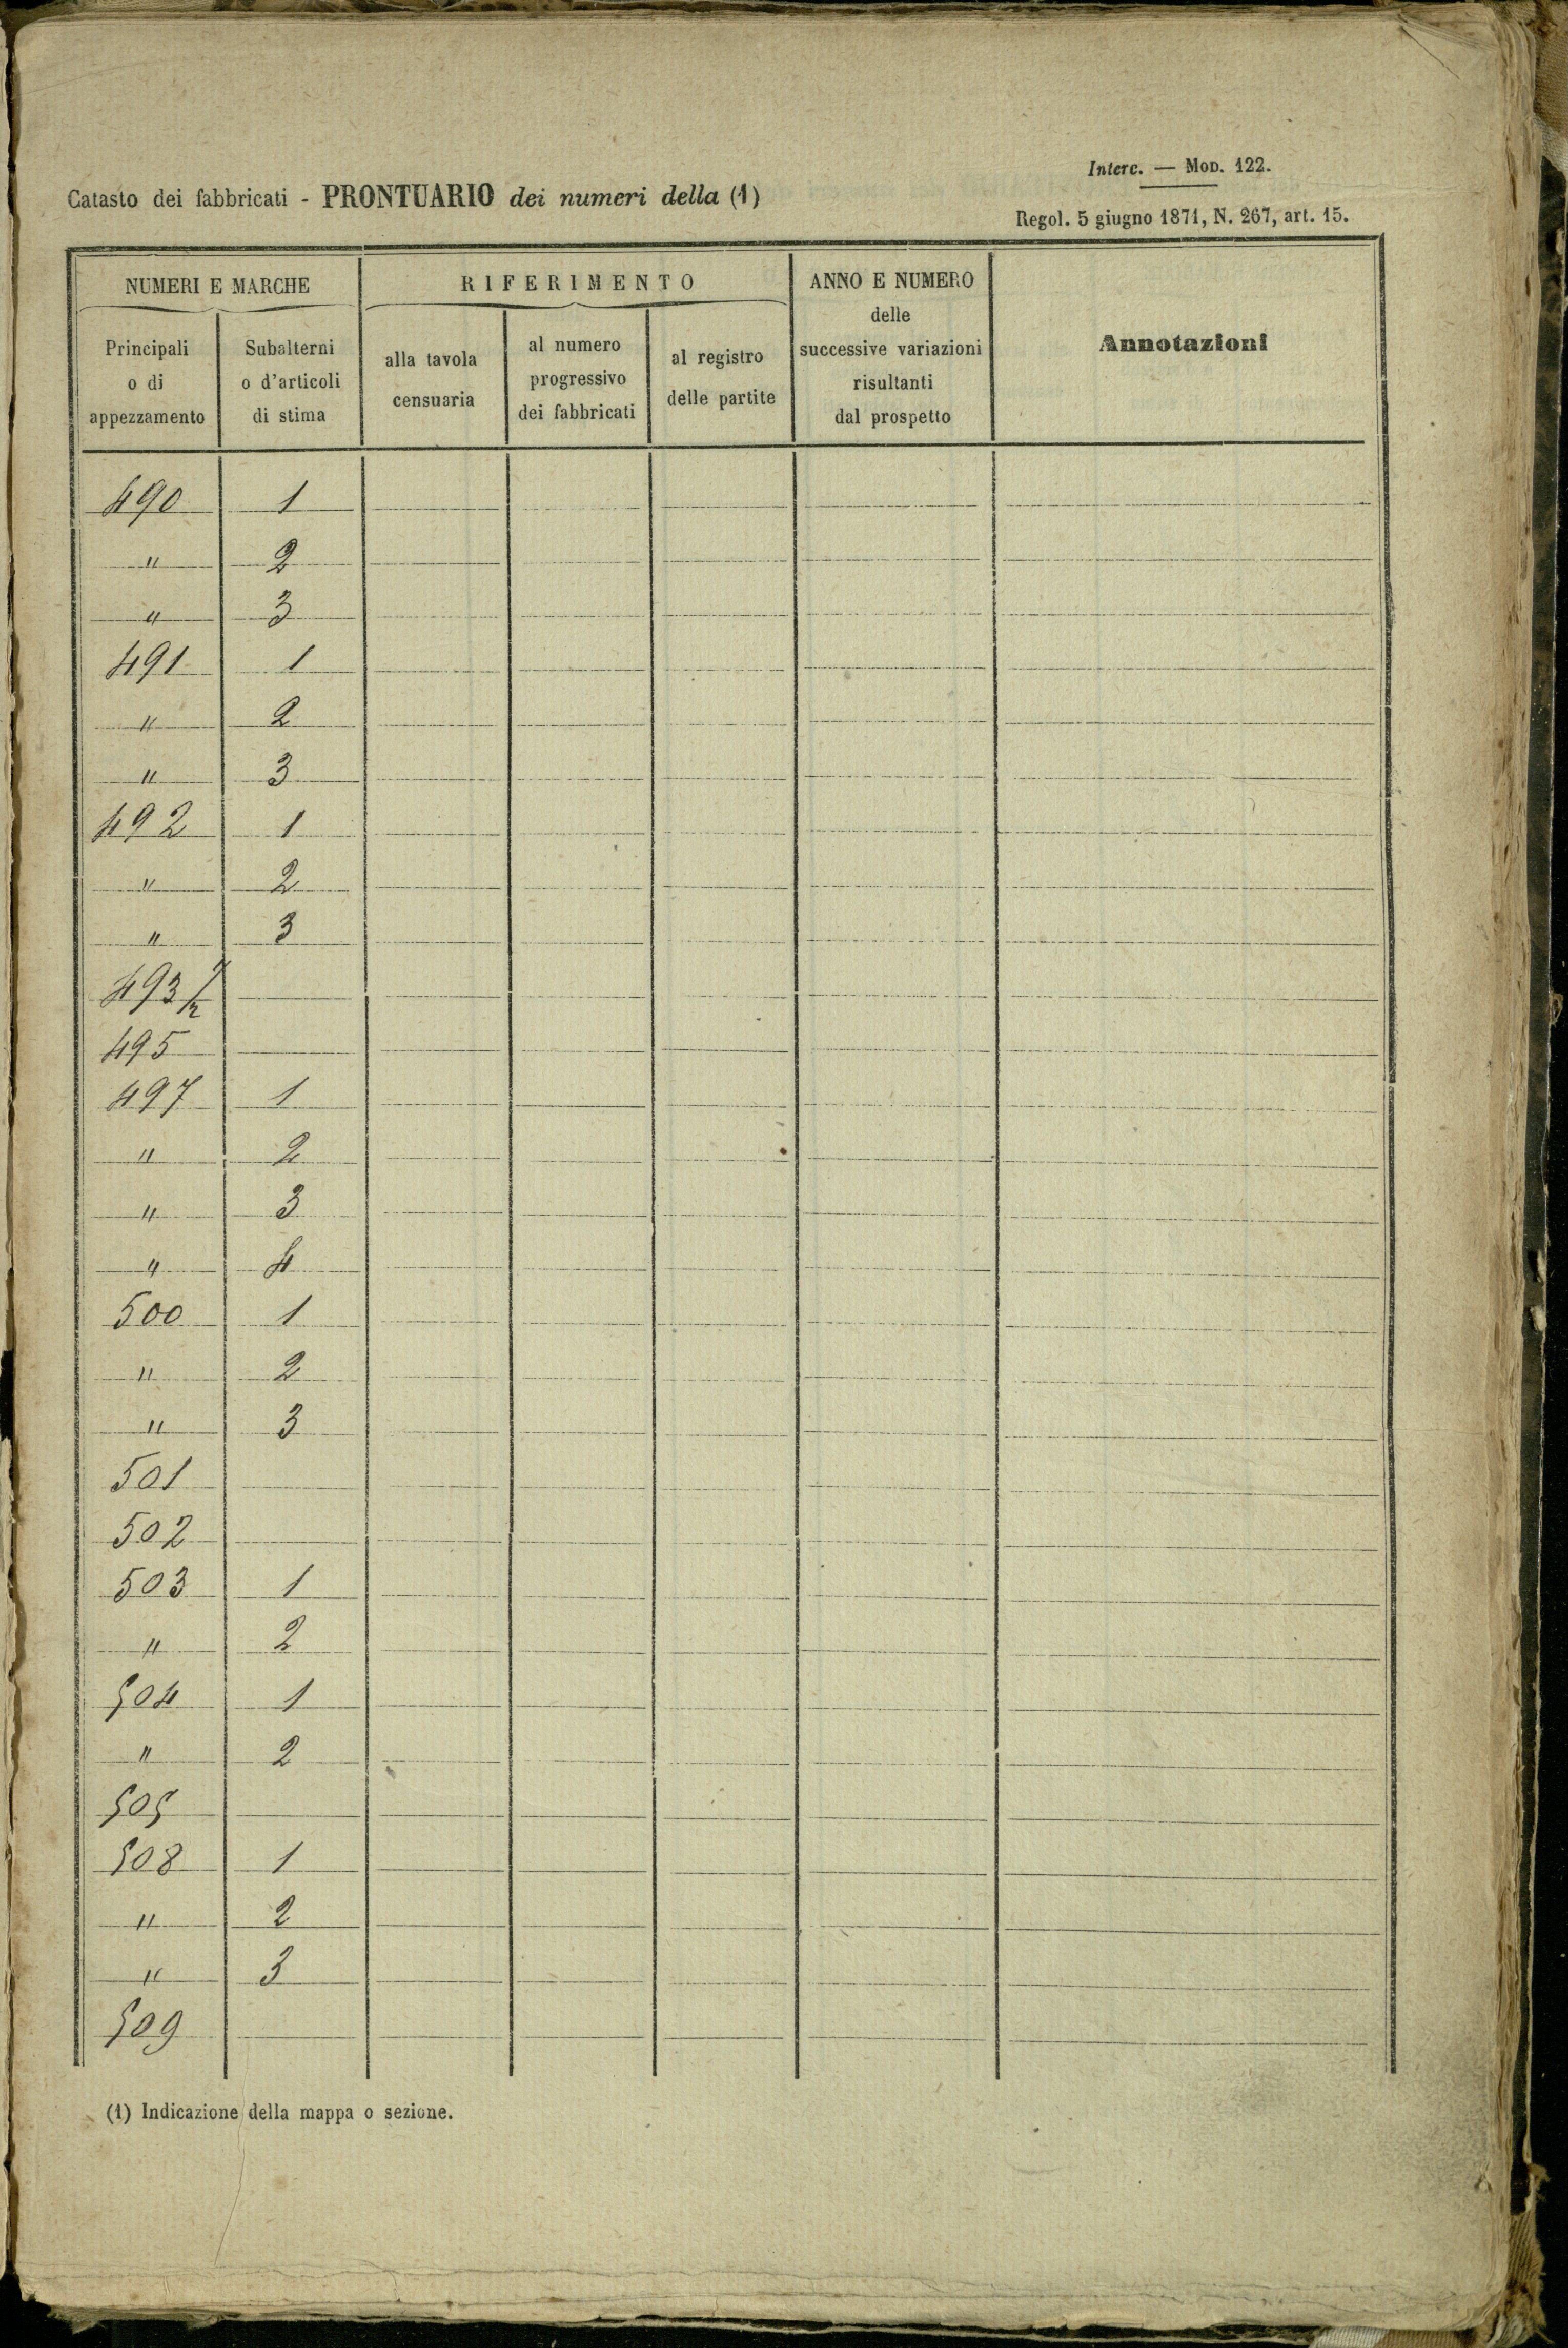 Interc. — Mod. 122.
Catasto dei fabbricati - PRONTUARIO dei numeri della (1)
Regol. 5 giugno 1871, N. 267, art. 15.
NUMERI E MARCHE
RIFERIMENTO
ANNO E NUMERO
delle
successive variazioni
risultanti
dal prospetto
Annotazioni
Principali
o di
appezzamento
Subalterni
o d'articoli
di stima
alla tavola
censuaria
al numero
progressivo
dei fabbricati
al registro
delle partite
490 1
" 2
" 3
491 1
" 2
" 3
492 1
" 2
" 3
493 1/2
495
497 1
" 2
" 3
" 4
500 1
" 2
" 3
501
502
503 1
" 2
504 1
" 2
505
508 1
" 2
" 3
509
(1) Indicazione della mappa o sezione.